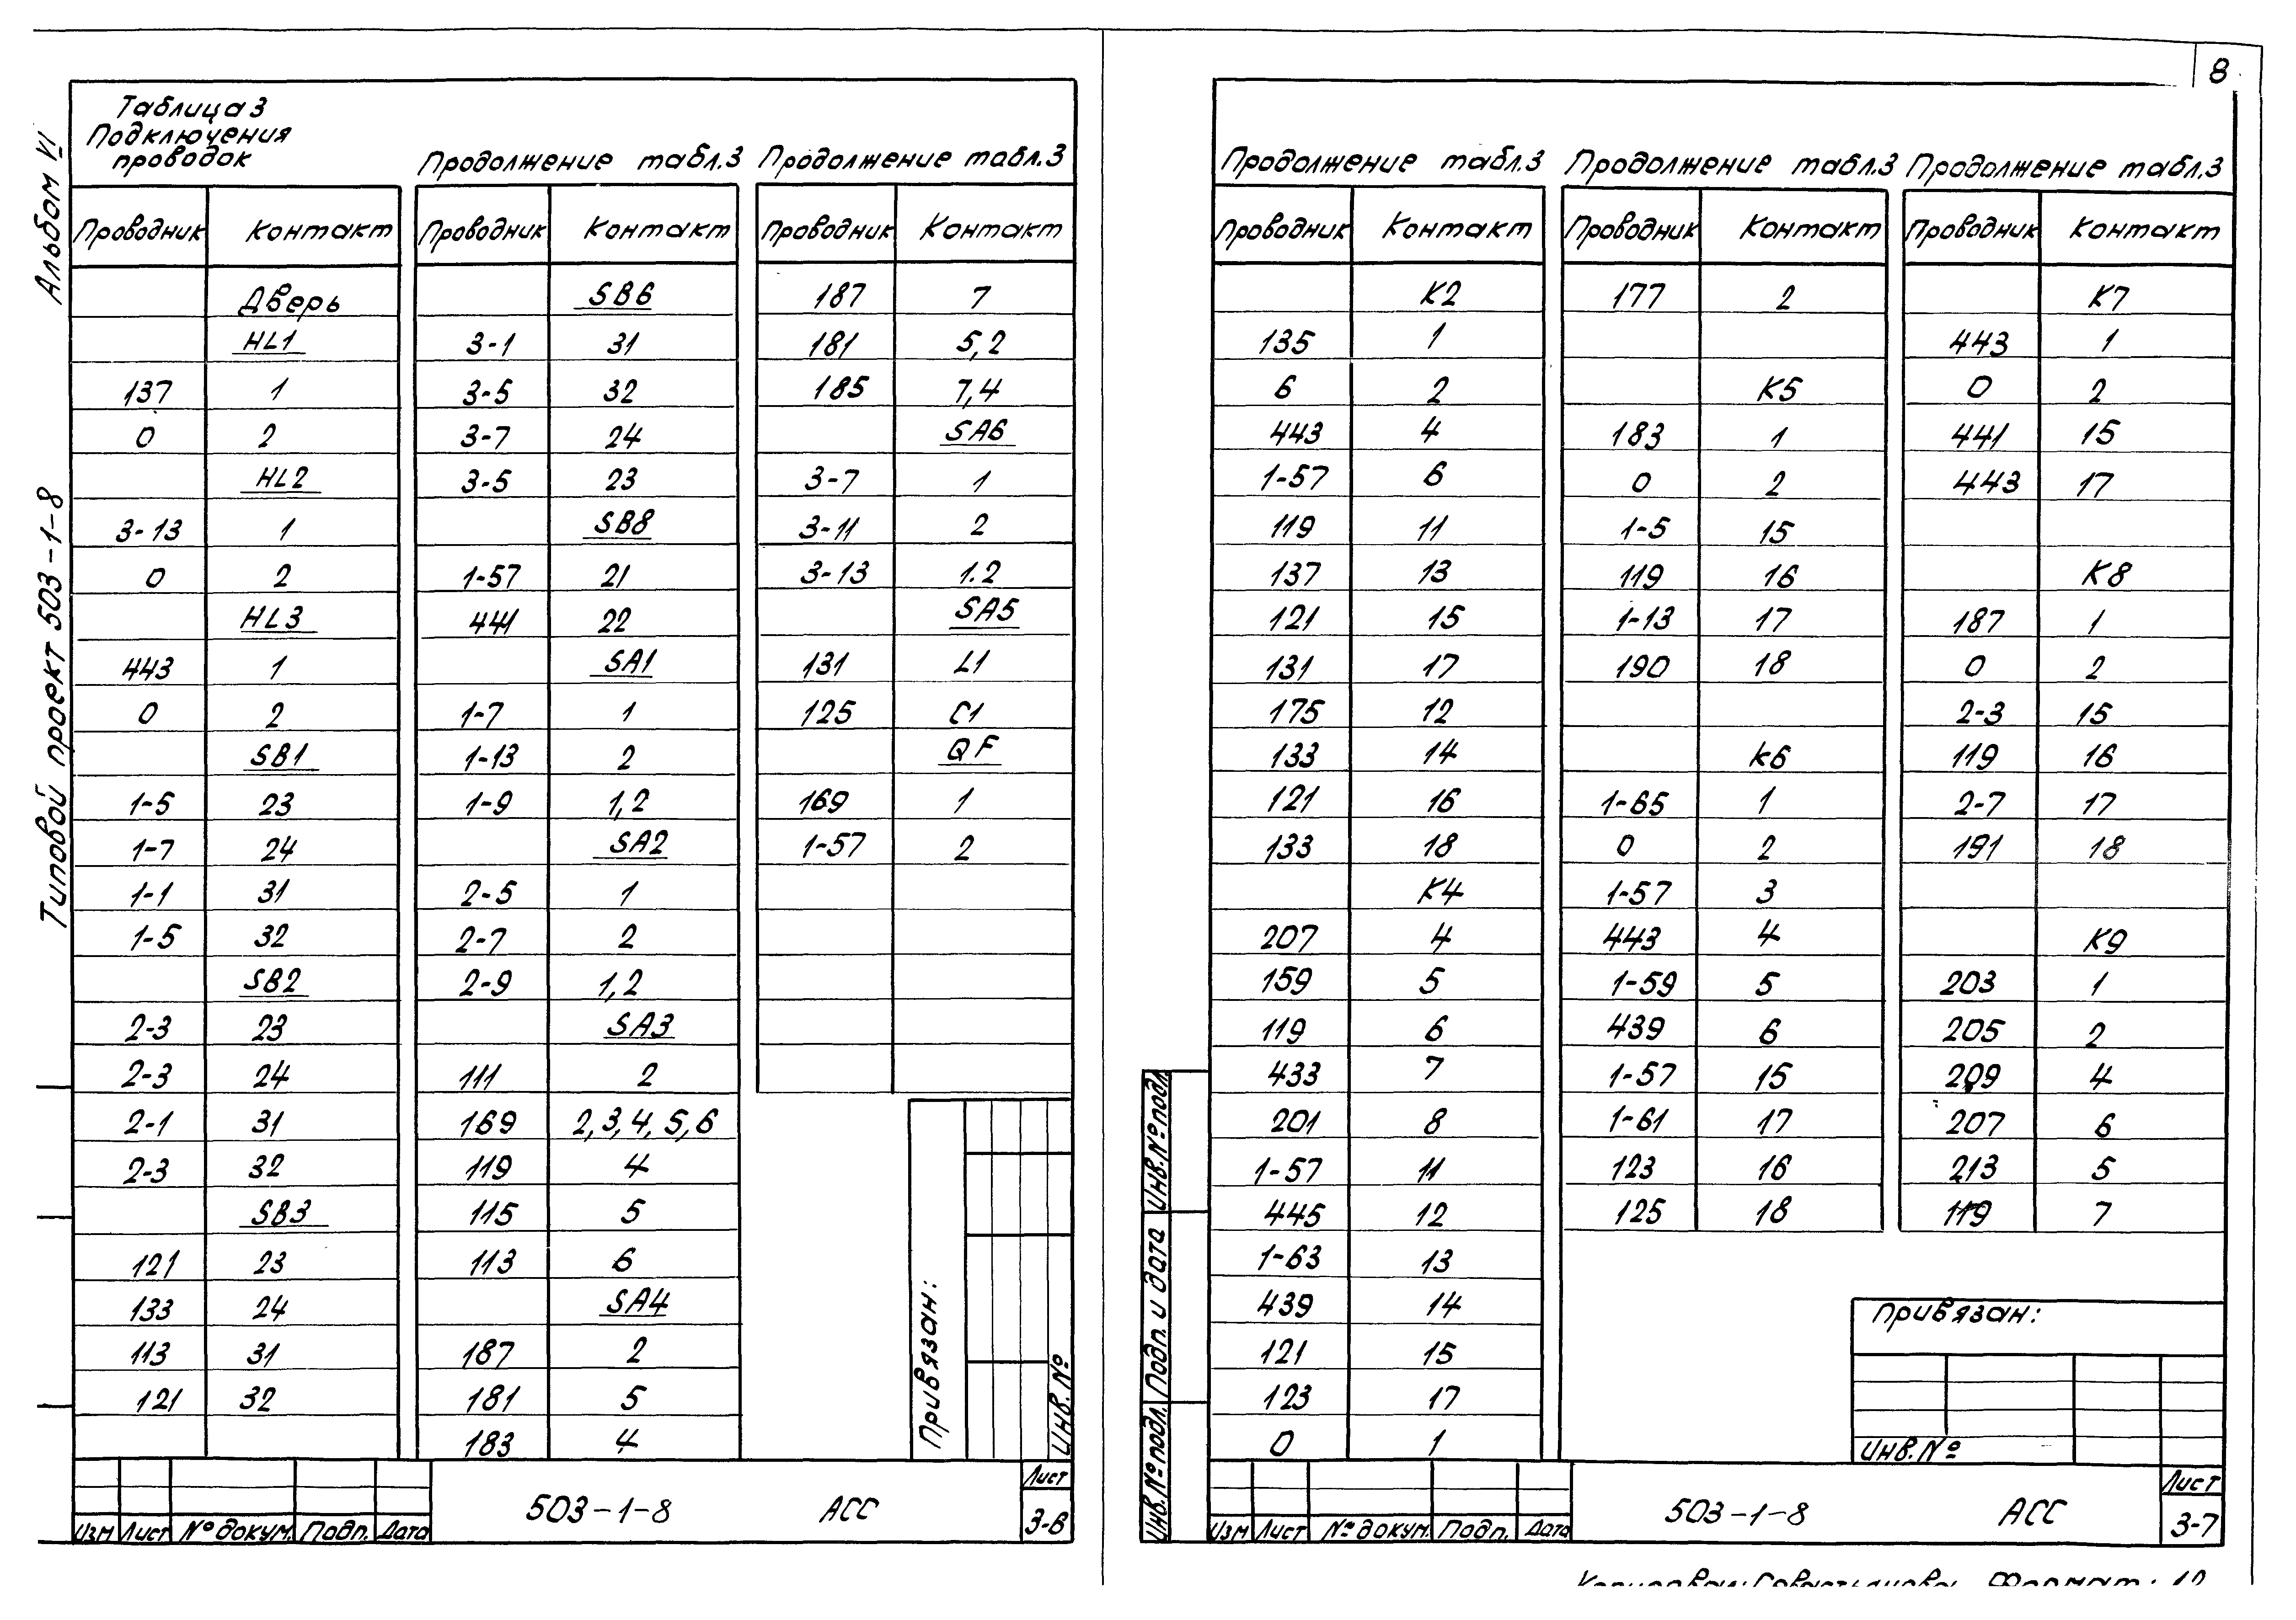 8
Альбом VI
Типовой проект 503-1-8
Таблица 3
Подключения
проводок
Проводник Контакт
Дверь
HL1
137 1
0 2
HL2
3-13 1
0 2
HL3
443 1
0 2
SB1
1-5 23
1-7 24
1-1 31
1-5 32
SB2
2-3 23
2-3 24
2-1 31
2-3 32
SB3
121 23
133 24
113 31
121 32
Продолжение табл.3
Проводник Контакт
SB6
3-1 31
3-5 32
3-7 24
3-5 23
SB8
1-57 21
441 22
SA1
1-7 1
1-13 2
1-9 1,2
SA2
2-5 1
2-7 2
2-9 1,2
SA3
111 2
169 2,3,4,5,6
119 4
115 5
113 6
SA4
187 2
181 5
183 4
Продолжение табл.3
Проводник Контакт
187 7
181 5,2
185 7,4
SA6
3-7 1
3-11 2
3-13 1.2
SA5
131 L1
125 C1
QF
169 1
1-57 2
Привязан:
Инв.№
Изм Лист № докум. Подп. Дата
503-1-8 АСС
Лист
3-6
Продолжение табл.3
Проводник Контакт
K2
135 1
6 2
443 4
1-57 6
119 11
137 13
121 15
131 17
175 12
133 14
121 16
133 18
K4
207 4
159 5
119 6
433 7
201 8
1-57 11
445 12
1-63 13
439 14
121 15
123 17
0 1
Продолжение табл.3
Проводник Контакт
177 2
K5
183 1
0 2
1-5 15
119 16
1-13 17
190 18
K6
1-65 1
0 2
1-57 3
443 4
1-59 5
439 6
1-57 15
1-61 17
123 16
125 18
Продолжение табл.3
Проводник Контакт
K7
443 1
0 2
441 15
443 17
K8
187 1
0 2
2-3 15
119 16
2-7 17
191 18
K9
203 1
205 2
209 4
207 6
213 5
119 7
Привязан:
Инв.№
Инв.№подл.
Подп. и дата
Инв.№подл.
Изм Лист № докум. Подп. Дата
503-1-8 АСС
Лист
3-7
Формат: 12